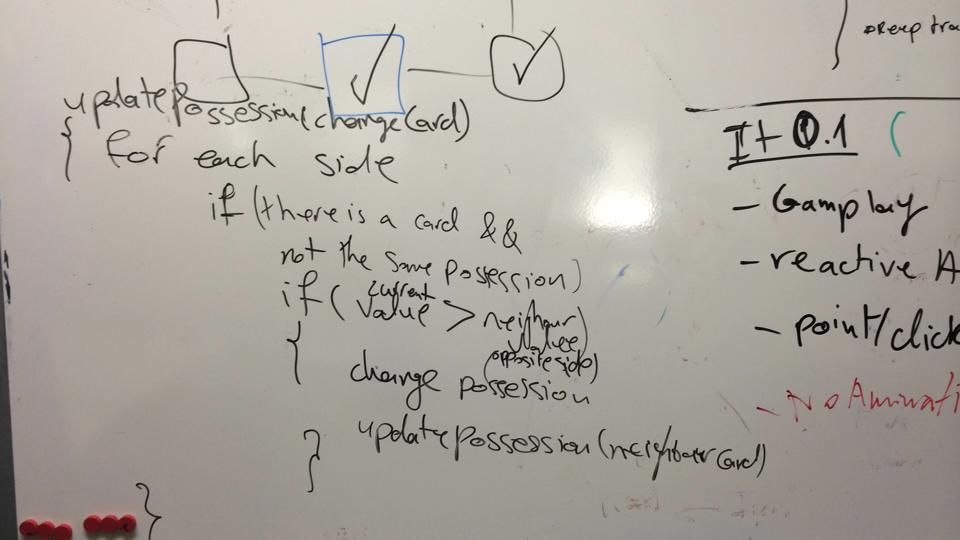 updatePossession(changeCard)
{ for each side
if (there is a card &&
not the same possession)
if ( current
value > neighour
value)
(opposite side)
{
change possession
updatePossession(neighbour card)
}
}
It 0.1 (
- Gamplay
- reactive A
- point/click
- No Animati